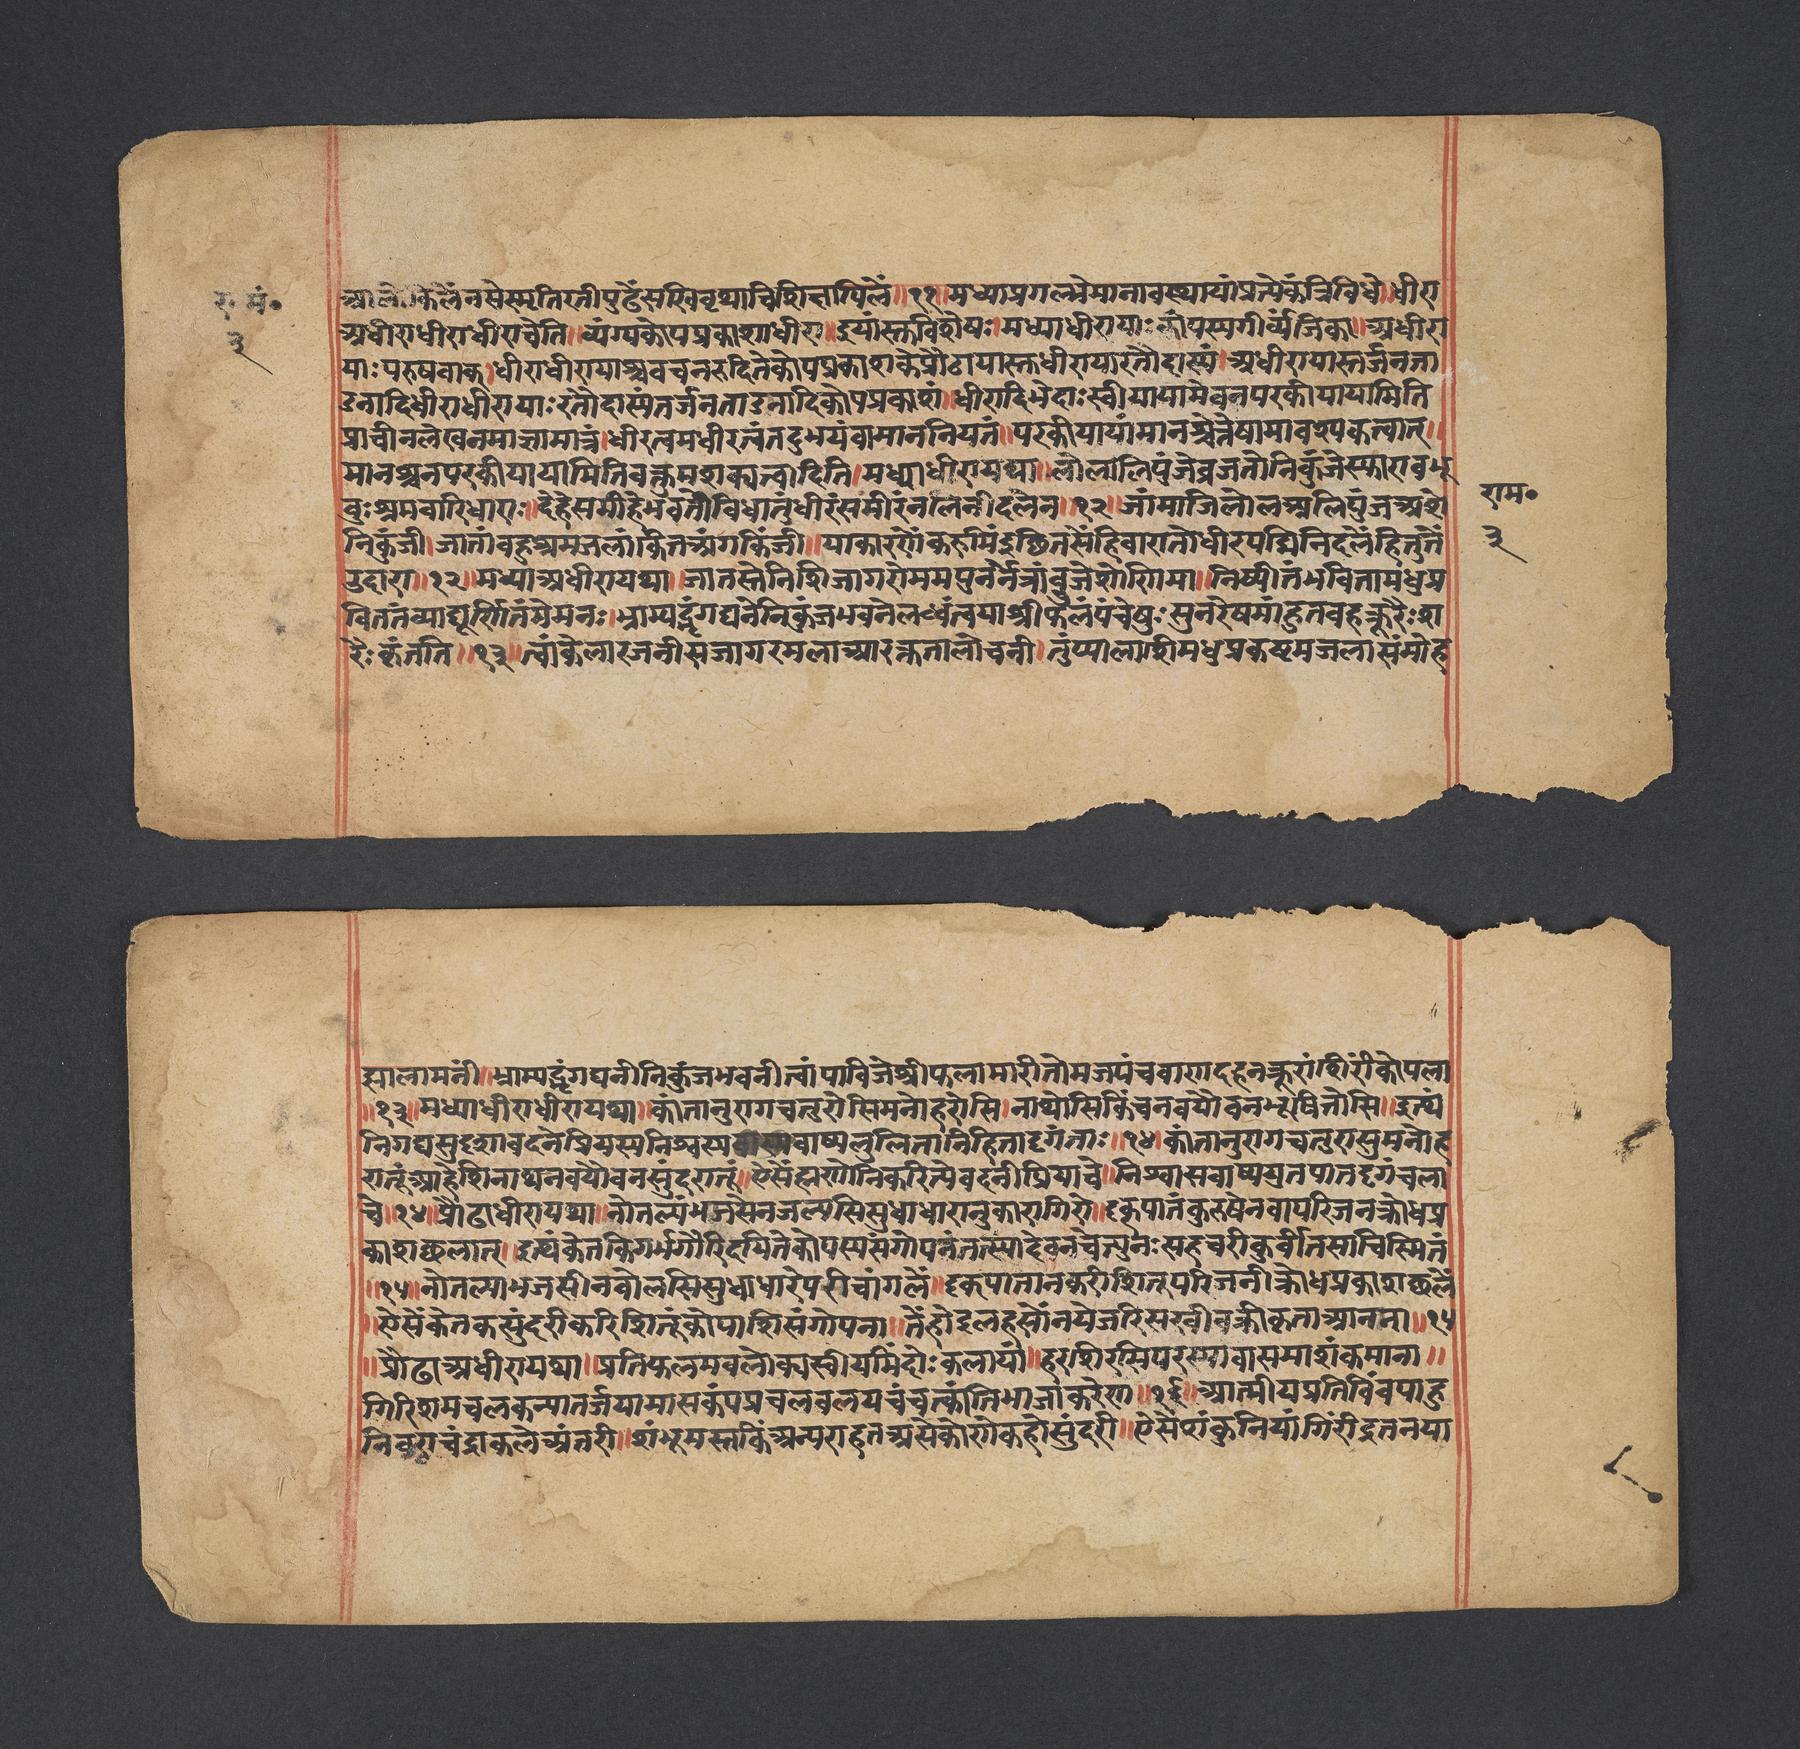 र॰ मं॰
३
आलोकिलेंनसेस्मृतिरतीपुढेंसखिवृथाचिशिनाग्पिलें॥११॥मध्याप्रगल्भेमानावस्थायांप्रत्येकंत्रिविधे।धीरा
अधीराधीराधीराचेति॥व्यंग्यकोपप्रकाशाधीरा॥इयांस्तुविशेषः।मध्याधीरायाःकोपस्यगीर्व्यंजिका॥अधीरा
याःपरुषवाक्।धीराधीरायाश्चवचनरुदितेकोपप्रकाशकेप्रौढायास्तुधीरायारतौदास्यं।अधीरायास्तर्जनता
डनादिधीराधीरायाःरतौदास्यतर्जनताडनादिकोपप्रकाशं॥धीरादिभेदाःस्वीयायामेवनपरकीयायामिति
प्राचीनलेखनमाज्ञामात्रं।धीरत्वमधीरत्वंतदुभयंवामाननियतं॥परकीयायांमानश्चेत्तेषामावश्यकत्वात्॥
मानश्चनपरकीयायामितिवक्तुमशक्यत्वादिति।मध्याधीरायथा॥लोलालिपुंजेव्रजतोनिकुंजेस्फारावभू
वुःश्रमवारिधाराः॥देहेसमीहेभवतोविधातुंधीरंसमीरंनलिनीदलेन॥१२॥जांमाजिलोलअलिपुंजअशे
निकुंजी।जातांबहुश्रमजलांकितअंगकिंजी॥याकारणेंकरुमिंइच्छितसेंहिवारातोधीरपद्मिनिदलेंहितुतें
उदारा॥१२॥मध्याअधीरायथा॥जातस्तेनिशिजागरोममपुनर्नेत्रांबुजेशोणिमा॥निष्पीतंभवितामधुप्र
विततंव्याघूर्णितंमेमनः॥भ्राम्यद्भृंगघनेनिकुंजभवनेलब्धंत्वयाश्रीफलंपंचेषुःपुनरेषमांहुतवहक्रूरैःश
रैःकृंतति॥१३॥त्वांकेलारजनीसजागरमलाआरक्ततालोचनी।तुंप्यालाशिमधुप्रकष्टमजलासंमोह
राम॰
३
झालामनीं॥भ्राम्यद्भृंगघनीनिकुंजभवनीत्वांपाविजेश्रीफलामारीतोमजपंचबाणदहनक्रूरांशिरींकोपला
॥१३॥मध्याधीराधीरायथा॥कांतानुरागचतुरोसिमनोहरोसि।नाथोसिकिंचनवयौवनभूषितोसि॥इत्थं
निगद्यसुदृशावदनेप्रियस्यनिश्वस्यबाष्पलुलितानिहितादृगंताः॥१४॥कांतानुरागचतुरासुमनोह
रातूंआहेशिनाथनवयौवनसुंदरातूं॥ऐसेंह्मणोनिकरित्येवदनीप्रियाचे॥निश्वासबाष्पश्रुतपातदृगंचला
चे॥१४॥प्रौढाधीरायथा॥नोतल्पंभजसेनजल्पसिसुधाधारानुकारागिरो।दृक्पातंकुरुषेनवापरिजनक्रोधप्र
काशछलात्॥इत्थंकेतकिगर्भगौरिदयितेकोपस्यसंगोपनंतत्स्यादेवनचेत्पुनःसहचरीकुर्वीतसाचिस्मितं
॥१५॥नोतल्पाभजसीनबोलसिसुधाधारेपरीचांगलें॥दृक्पातानकरीशितूपरिजनीक्रोधप्रकाशछलें
॥ऐसेंकेतकसुंदरीकरिशितूंकोपाशिसंगोपना॥तेंहोइलहसोंनयेजरिसखीवक्रीकृताआनना॥१५
॥प्रौढाअधीरायथा॥प्रतिफलमवलोक्यस्वीयमिंदोःकलायां॥हरशिरसिपरस्यावासमाशंकमाना॥
गिरिशमचलकन्यातर्जयामासकंपप्रचलवलयचंचत्कांतिभाजाकरेण॥१६॥आत्मीयप्रतिबिंबपाहु
निकराचंद्राकलेअंतरी॥शंभूमस्तकिंअन्यराहतअसेकोणीकहोसुंदरी॥ऐसेशंकुनियांगिरींद्रतनया